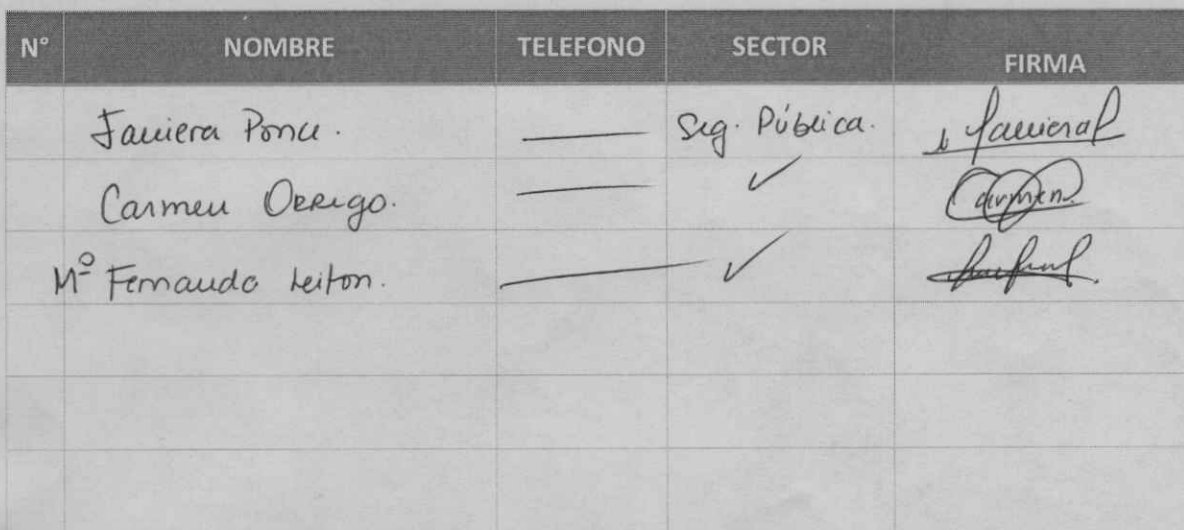 N° NOMBRE TELEFONO SECTOR FIRMA
Javiera Ponce. — Seg. Pública. JavieraP
Carmen Orrego. — ✓ Carmen
Mº Fernanda Leiton. — ✓